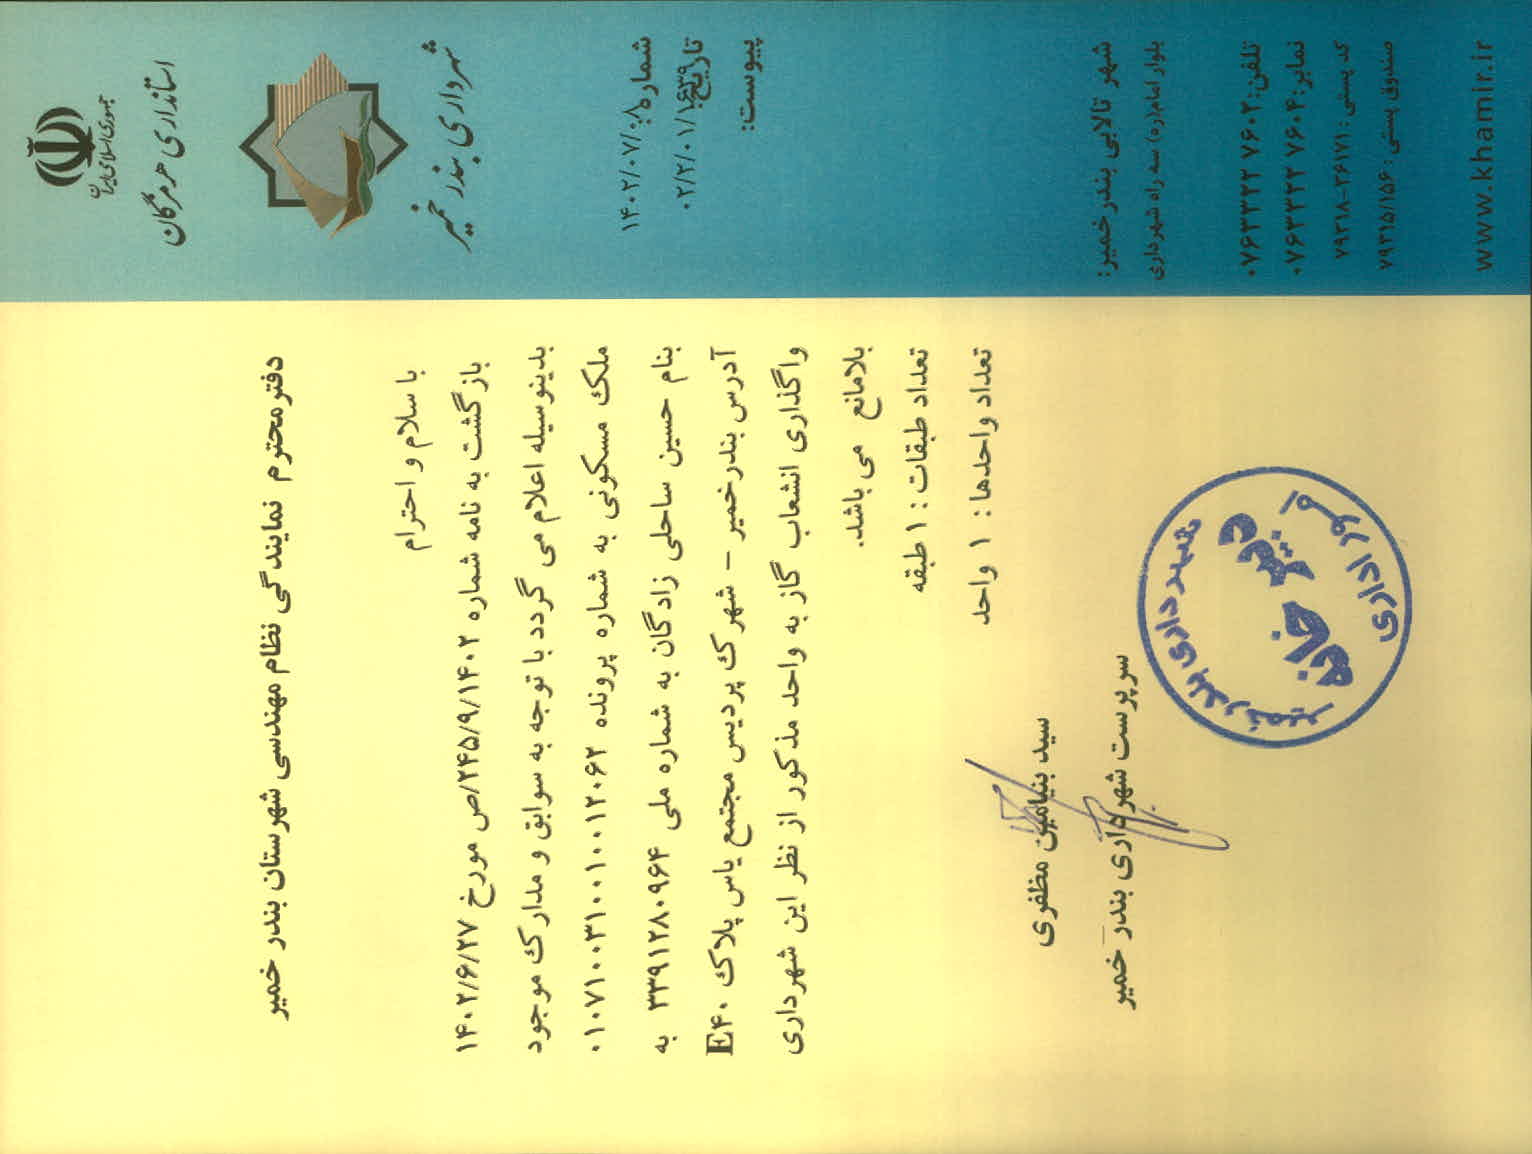 جمهوری اسلامی ایران
استانداری هرمزگان
شهرداری بندر خمیر
شماره: ۱۴۰۲/۰۷/۰۸
تاریخ:
پیوست:
شهر تالابی بندر خمیر:
بلوار امام(ره) سه راه شهرداری
تلفن: ۰۷۶۳۳۲۲ ۷۶۰۲
نمابر: ۰۷۶۳۳۲۲ ۷۶۰۴
کد پستی: ۷۹۳۱۸-۳۶۱۷۱
صندوق پستی: ۷۹۳۱۵/۱۵۶
www.khamir.ir
دفتر محترم نمایندگی نظام مهندسی شهرستان بندر خمیر
با سلام و احترام
بازگشت به نامه شماره ۲۴۵/۹/۱۴۰۲/ص مورخ ۱۴۰۲/۶/۲۷
بدینوسیله اعلام می گردد با توجه به سوابق و مدارک موجود
ملک مسکونی به شماره پرونده ۰۱۰۷۱۰۰۳۱۰۰۱۰۰۱۲۰۶۲
بنام حسین ساحلی زادگان به شماره ملی ۳۳۹۱۲۸۰۹۶۴ به
آدرس بندرخمیر - شهرک پردیس مجتمع یاس پلاک E۴۰
واگذاری انشعاب گاز به واحد مذکور از نظر این شهرداری
بلامانع می باشد.
تعداد طبقات : ۱ طبقه
تعداد واحدها : ۱ واحد
سید بنیامین مظفری
سرپرست شهرداری بندر خمیر
شهرداری بندر خمیر
دبیرخانه
امور اداری